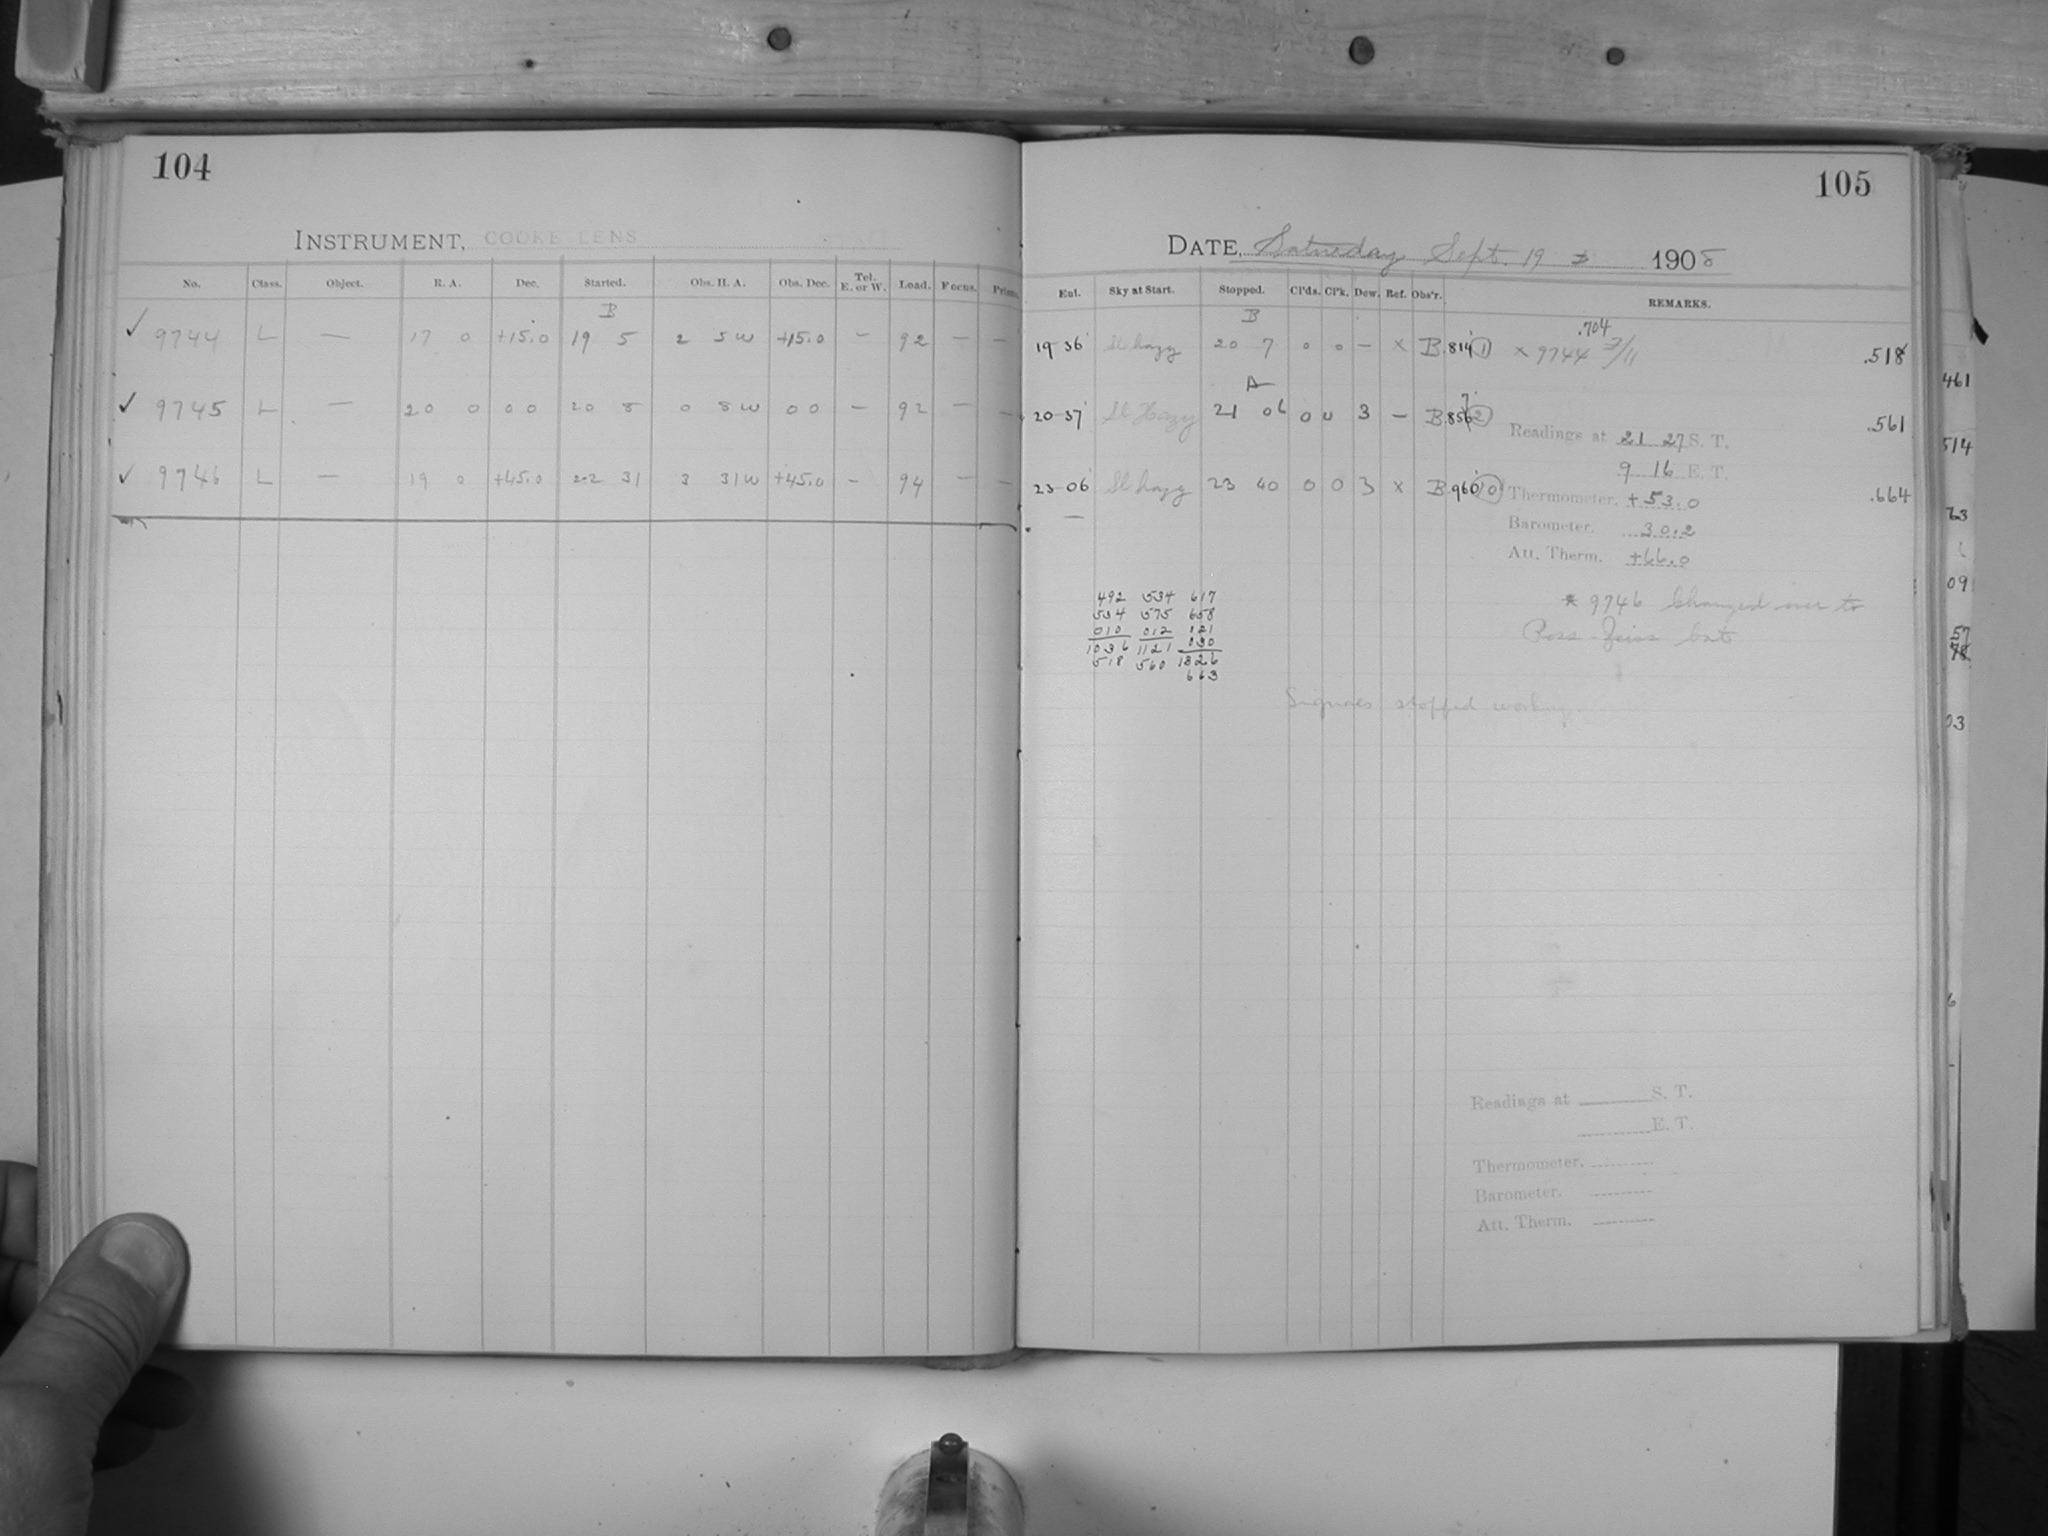 104
INSTRUMENT, COOKE LENS
No. Class. Object. R. A. Dec. Started. Obs. H. A. Obs. Dec. Tel. E. or W. Load. Focus. Prism.
B
✓ 9744 L — 17 0 +15.0 19 5 2 5 W +15.0 — 92 — —
✓ 9745 L — 20 0 0 0 20 8 0 8 W 0 0 — 92 — —
✓ 9746 L — 19 0 +45.0 22 31 3 31 W +45.0 — 94 — —
105
DATE, Saturday Sept. 19 1908
Ent. Sky at Start. Stopped. Cl'ds. Cl'k. Dew. Ref. Obs'r. REMARKS.
B .704
19 36 Sl hazy 20 7 0 0 — x B .814 1 x 9744 .518
A
20-37 Sl Hazy 21 06 0 0 3 — B .856 2 .561
Readings at 21 27 S. T.
9 16 E. T.
23-06 Sl hazy 23 40 0 0 3 x B .960 10 .664
Thermometer. +53.0
Barometer. 30.2
Att. Therm. +66.0
492 534 617
534 575 658
010 012 021
1036 1121 030
518 560 1326
663
* 9746 Changed over to
Ross-Zeiss
stopped working
Readings at S. T.
E. T.
Thermometer.
Barometer.
Att. Therm.
461
514
63
09
57
78
03
6